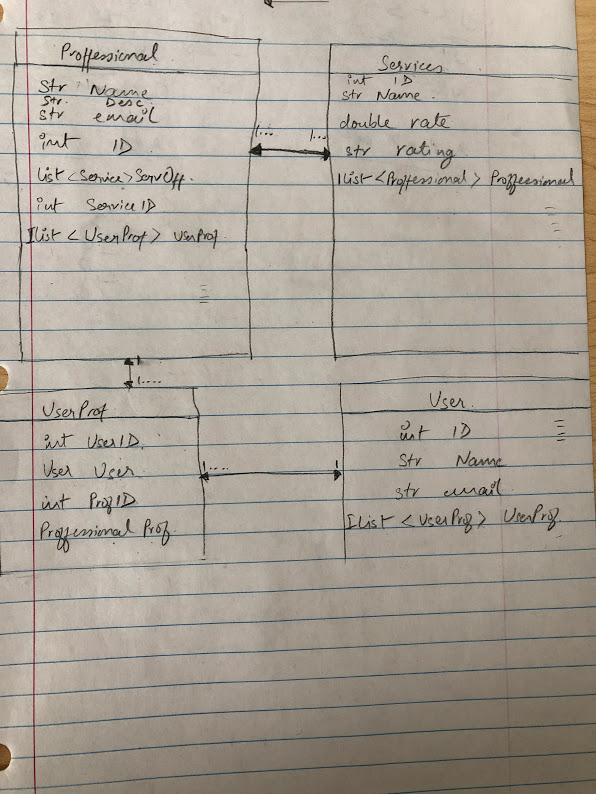 Proffessional
Str Name
Str. Desc.
Str email
int ID
List <Service> ServOff.
int Service ID
IList < UserProf > UserProf
Services
int ID
str Name.
double rate
str rating
IList <Proffessional> Proffessional
1... 1...
1
1....
UserProf
int UserID.
User User
int ProfID
Proffessional Prof.
User.
int ID
Str Name
str email.
IList <UserProf> UserProf.
1.... 1